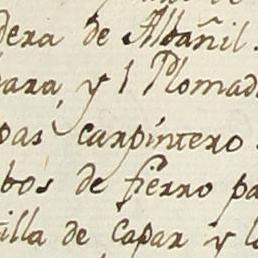 dera de Albañil.
para, y 1 Plomad
pas carpintero.
bos de fierro pa
illa de capar y la